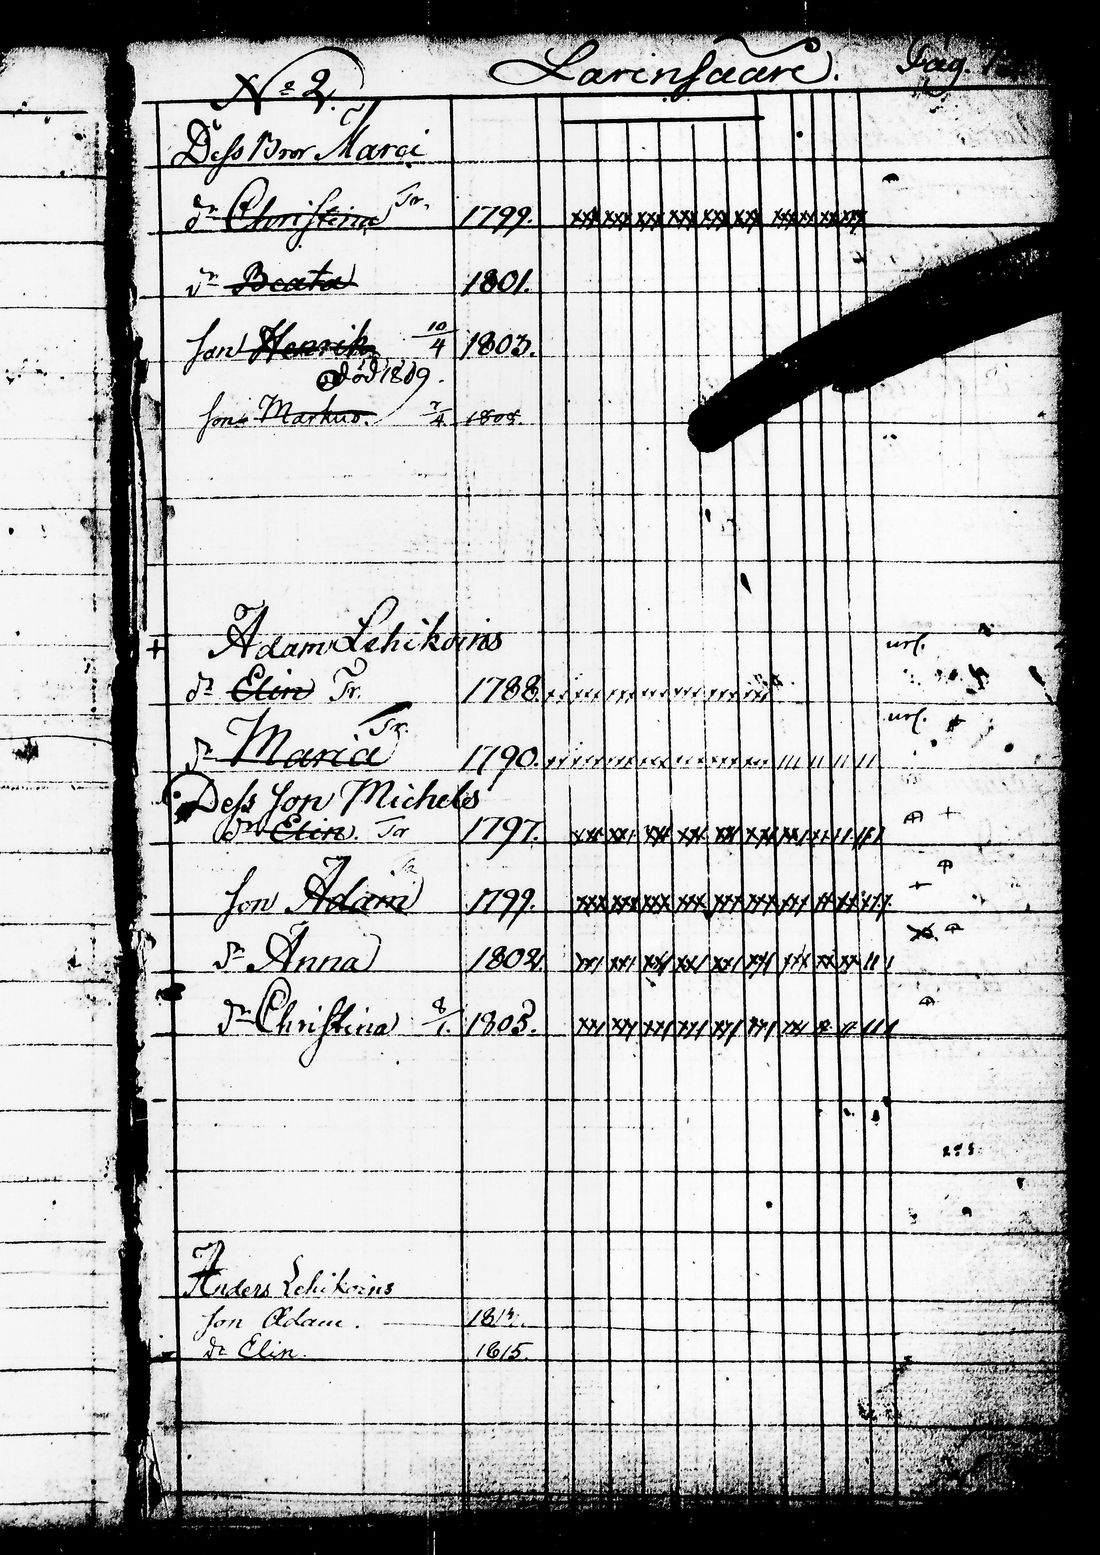 N:o 2. Larinsaari. Pag.
Dess Bror Marci
dr Christina Tr. 1799.
dr Beata 1801.
son Henrik 10/4 1803.
död 1809.
son Markus. 7/4 1808.
Adam Lehikoins url.
dr Elin Tr. 1788.
dr Maria Tr. 1790. url.
Dess Son Michels
dr Elin. Tr 1797.
son Adam 1799.
dr Anna 1802.
dr Christina 8/1. 1805.
Anders Lehikoins
son Adam.
dr Elin. 1815.